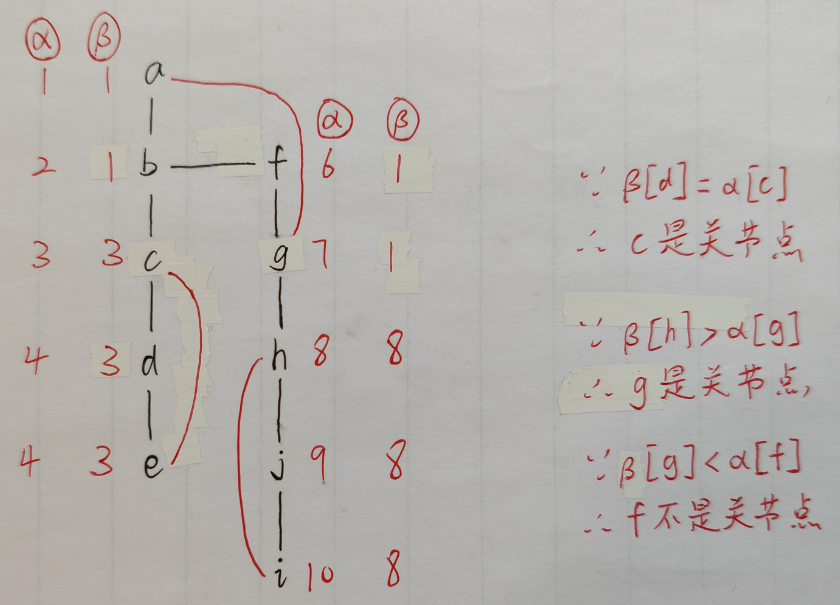 α β
1 1 a
α β
2 1 b f 6 1
3 3 c g 7 1
4 3 d h 8 8
4 3 e j 9 8
i 10 8
∵ β[d]=α[c]
∴ c是关节点
∵ β[h]>α[g]
∴ g是关节点,
∵ β[g]<α[f]
∴ f不是关节点